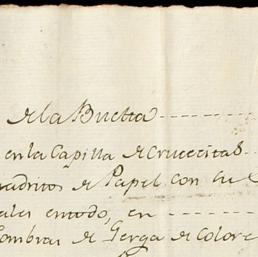 de la Buelta
en la Capilla de Crucecitas
uadritos de Papel con su
ales en todo, en
ombras de Gerga de Colore